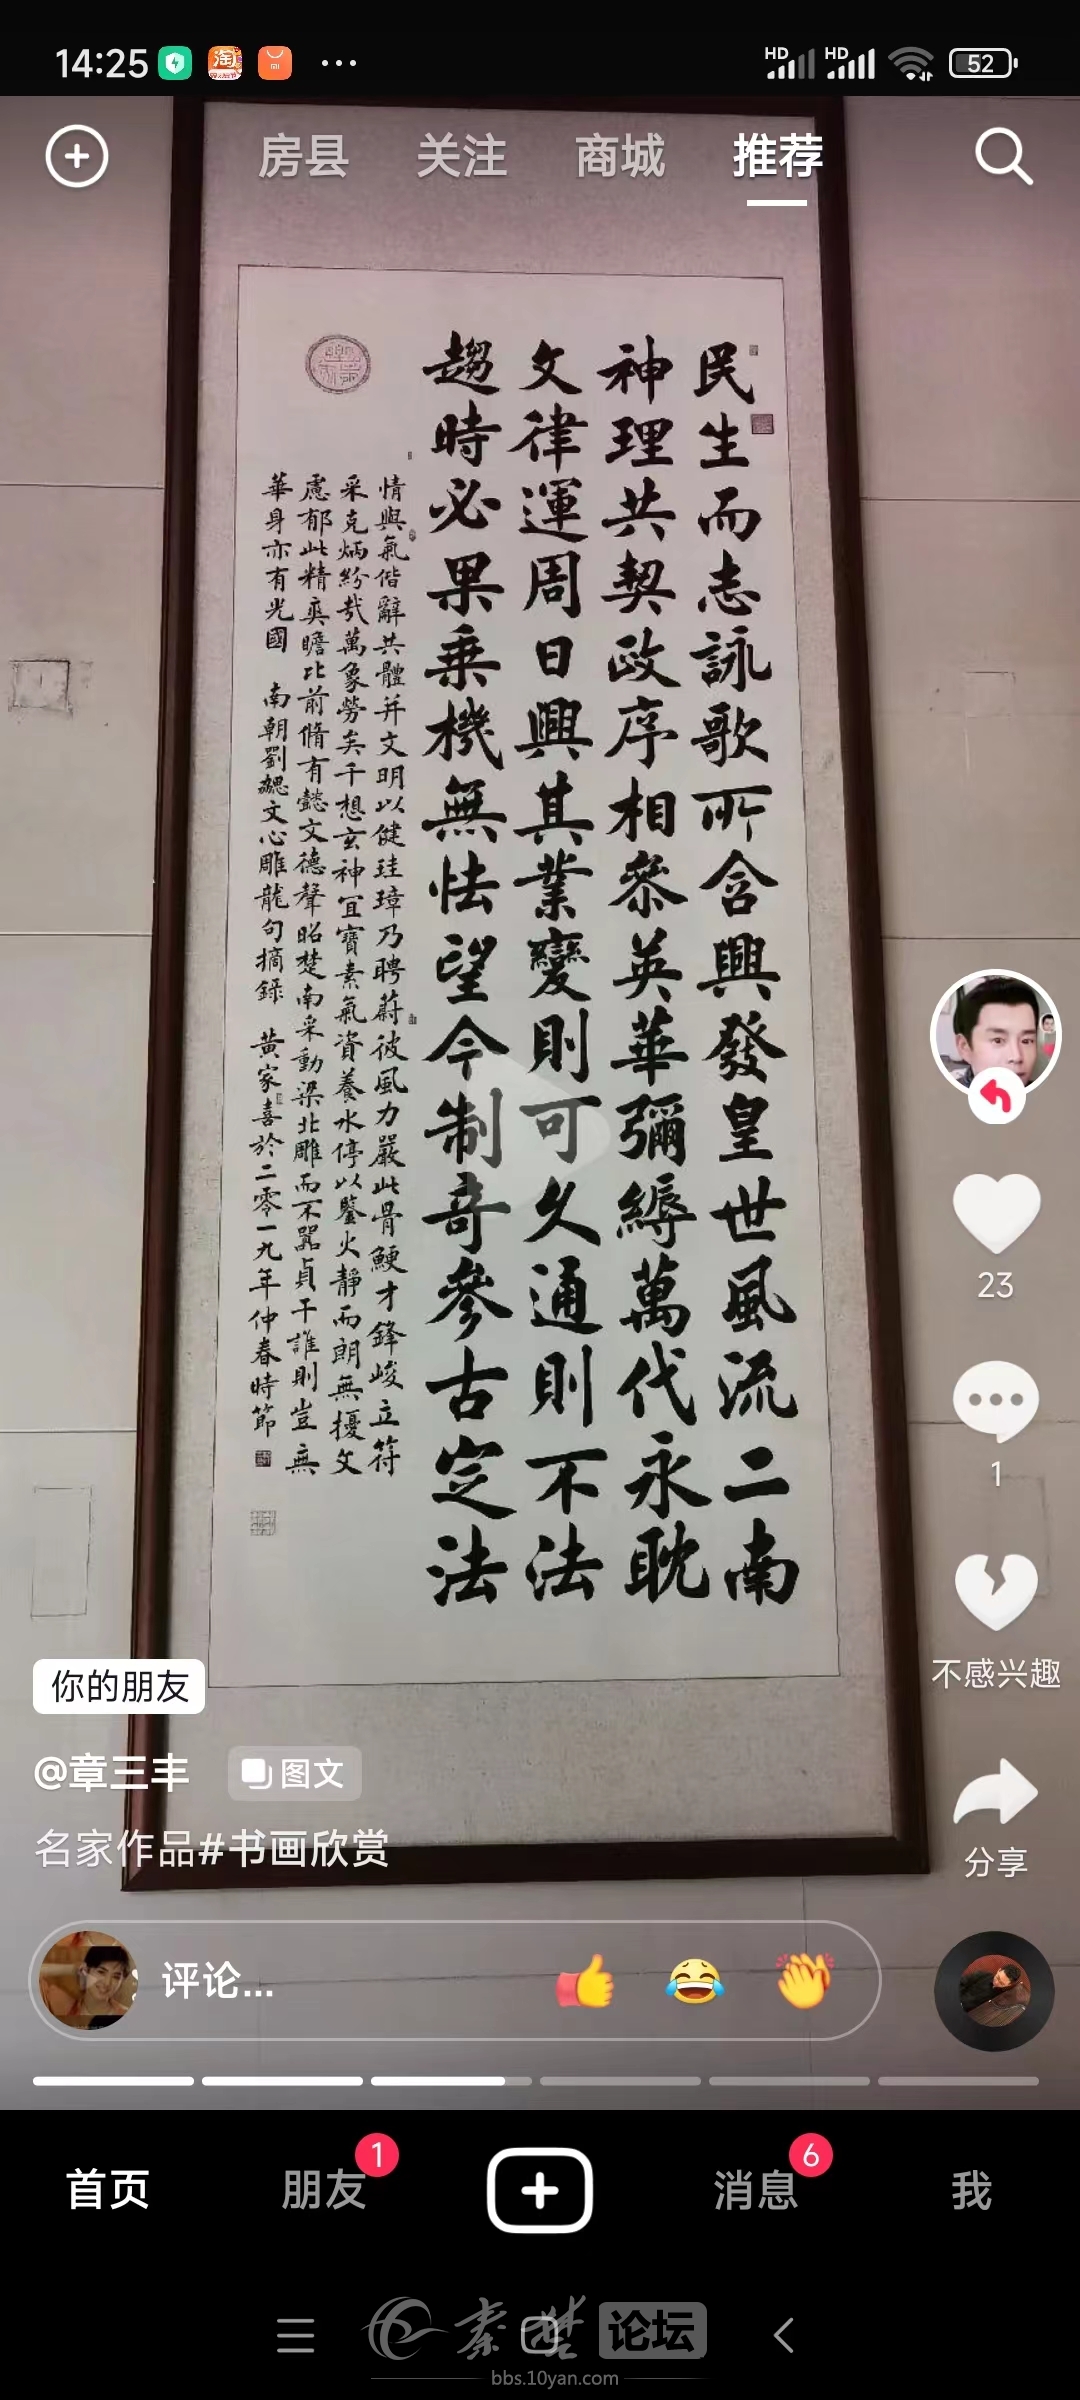 14:25
HD
HD
52
房县
关注
商城
推荐
民生而志詠歌所含興發皇世風流二南
神理共契政序相參英華彌縟萬代永耽
文律運周日興其業變則可久通則不法
趨時必果乘機無怯望今制奇參古定法
情與氣偕辭共體并文明以健珪璋乃聘蔚彼風力嚴此骨鯁才鋒峻立符
采克炳紛哉萬象勞矣千想玄神宜寶素氣資養水停以鑒火靜而朗無擾文
慮郁此精爽瞻比前脩有懿文德聲昭楚南采動梁北雕而不器貞干誰則豈無
華身亦有光國 南朝劉勰文心雕龍句摘錄 黄家喜於二零一九年仲春時節
23
1
不感兴趣
分享
你的朋友
@章三丰
图文
名家作品#书画欣赏
评论...
首页
朋友
1
消息
6
我
秦楚论坛
bbs.10yan.com